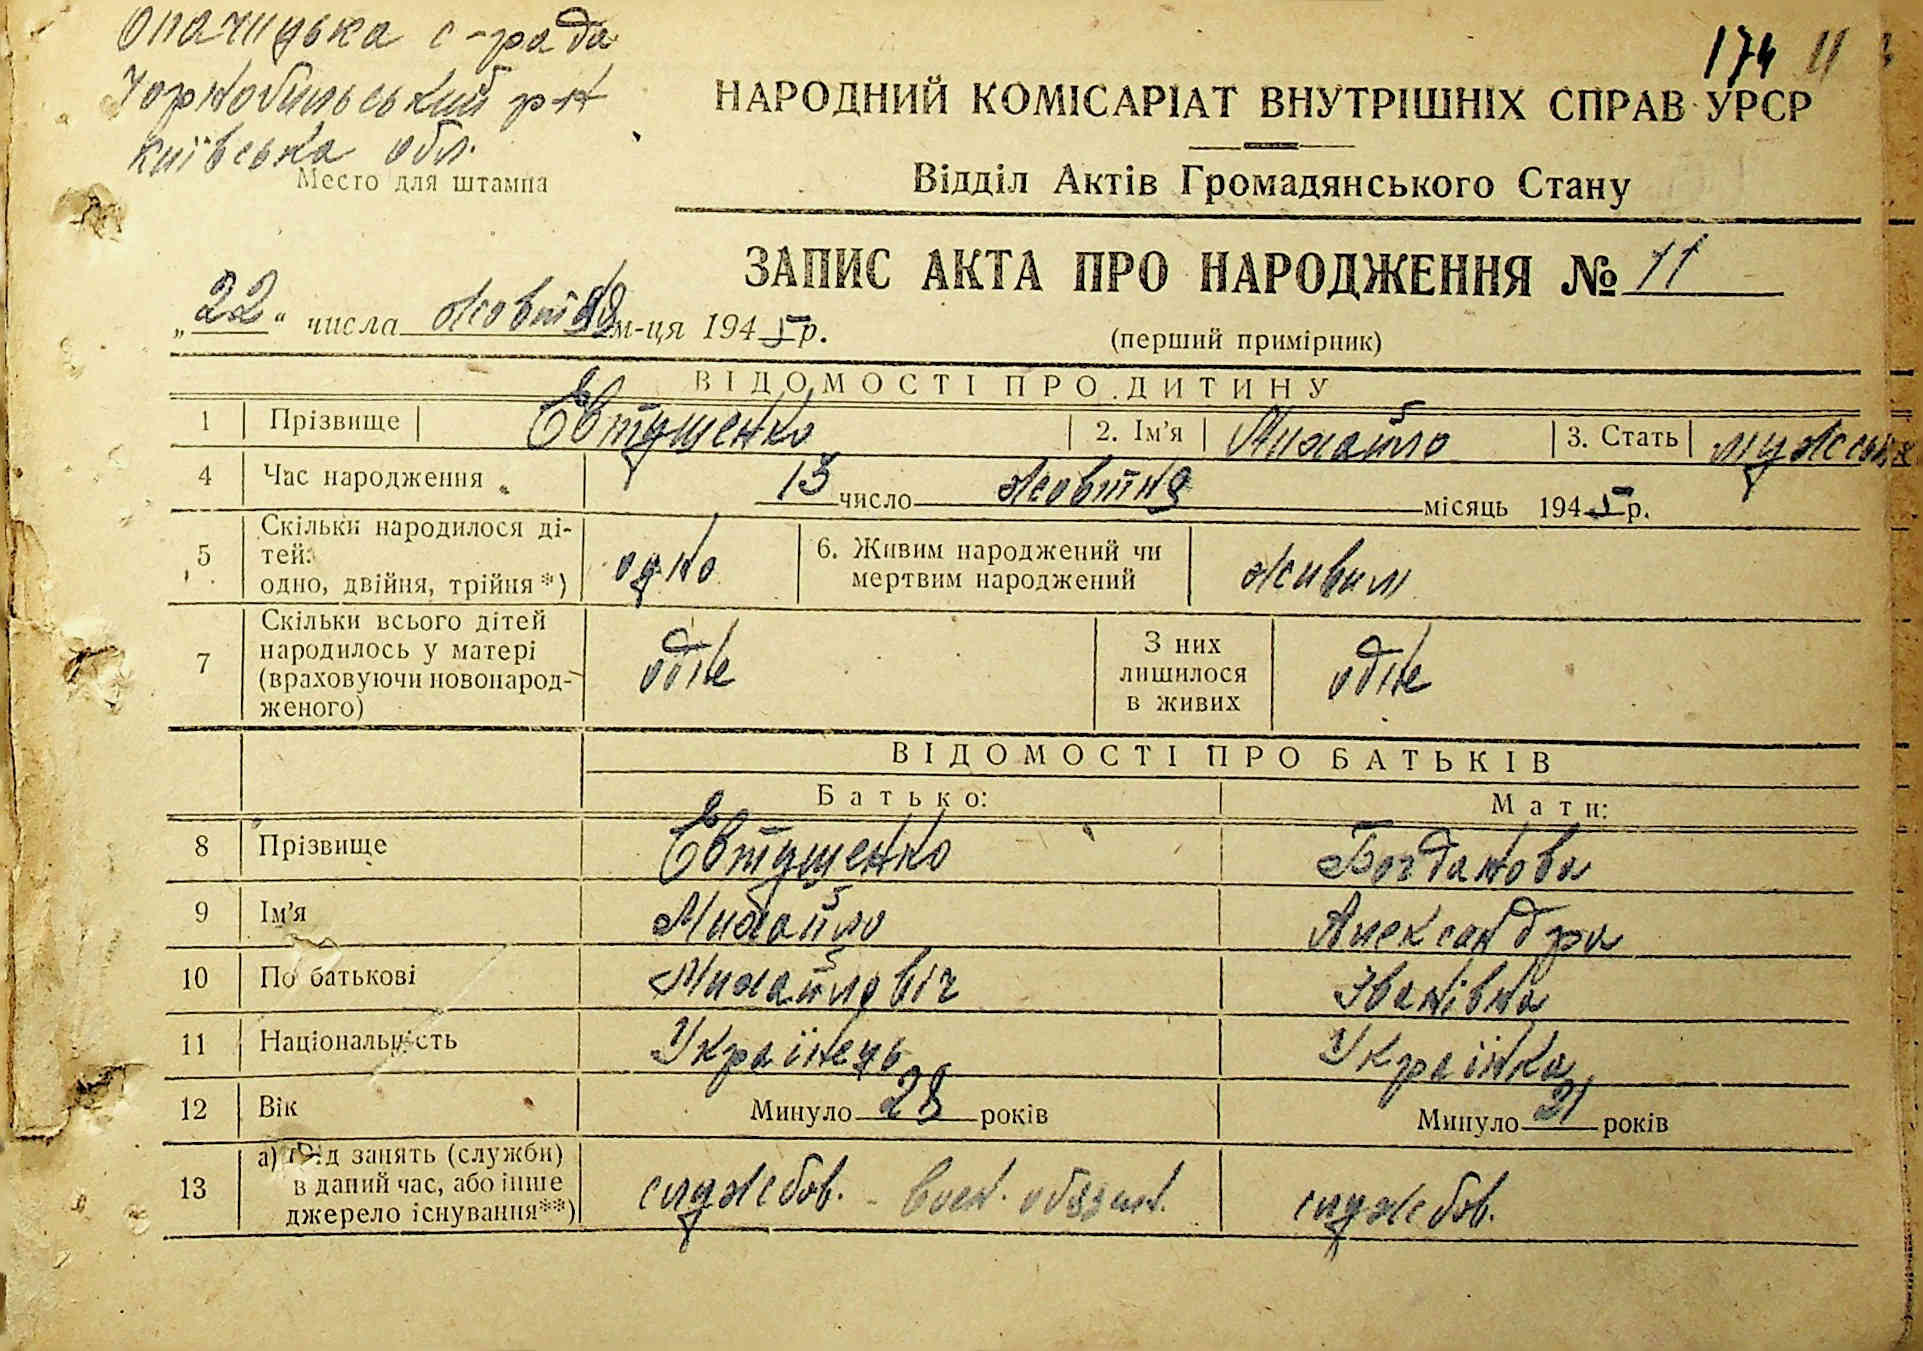 Опачицька с-рада
Чорнобильський р-н
київська обл.
Место для штампа
174 11
НАРОДНИЙ КОМІСАРІАТ ВНУТРІШНІХ СПРАВ УРСР
Відділ Актів Громадянського Стану
ЗАПИС АКТА ПРО НАРОДЖЕННЯ № 11
„22“ числа жовтня м-ця 1945 р.
(перший примірник)
ВІДОМОСТІ ПРО ДИТИНУ
1 Прізвище Євтушенко 2. Ім'я Михайло 3. Стать мужськ
4 Час народження 13 число жовтня місяць 1945 р.
5 Скільки народилося ді-
тей:
одно, двійня, трійня*) одно 6. Живим народжений чи
мертвим народжений живим
7 Скільки всього дітей
народилось у матері
(враховуючи новонарод-
женого) одне З них
лишилося
в живих одне
ВІДОМОСТІ ПРО БАТЬКІВ
Батько: Мати:
8 Прізвище Євтушенко Богданова
9 Ім'я Михайло Александра
10 По батькові Михайловіч Іванівна
11 Національність Українець Українка
12 Вік Минуло 28 років Минуло 21 років
13 а) Рід занять (служби)
в даний час, або інше
джерело існування**) службов. - воен. обязан. службов.